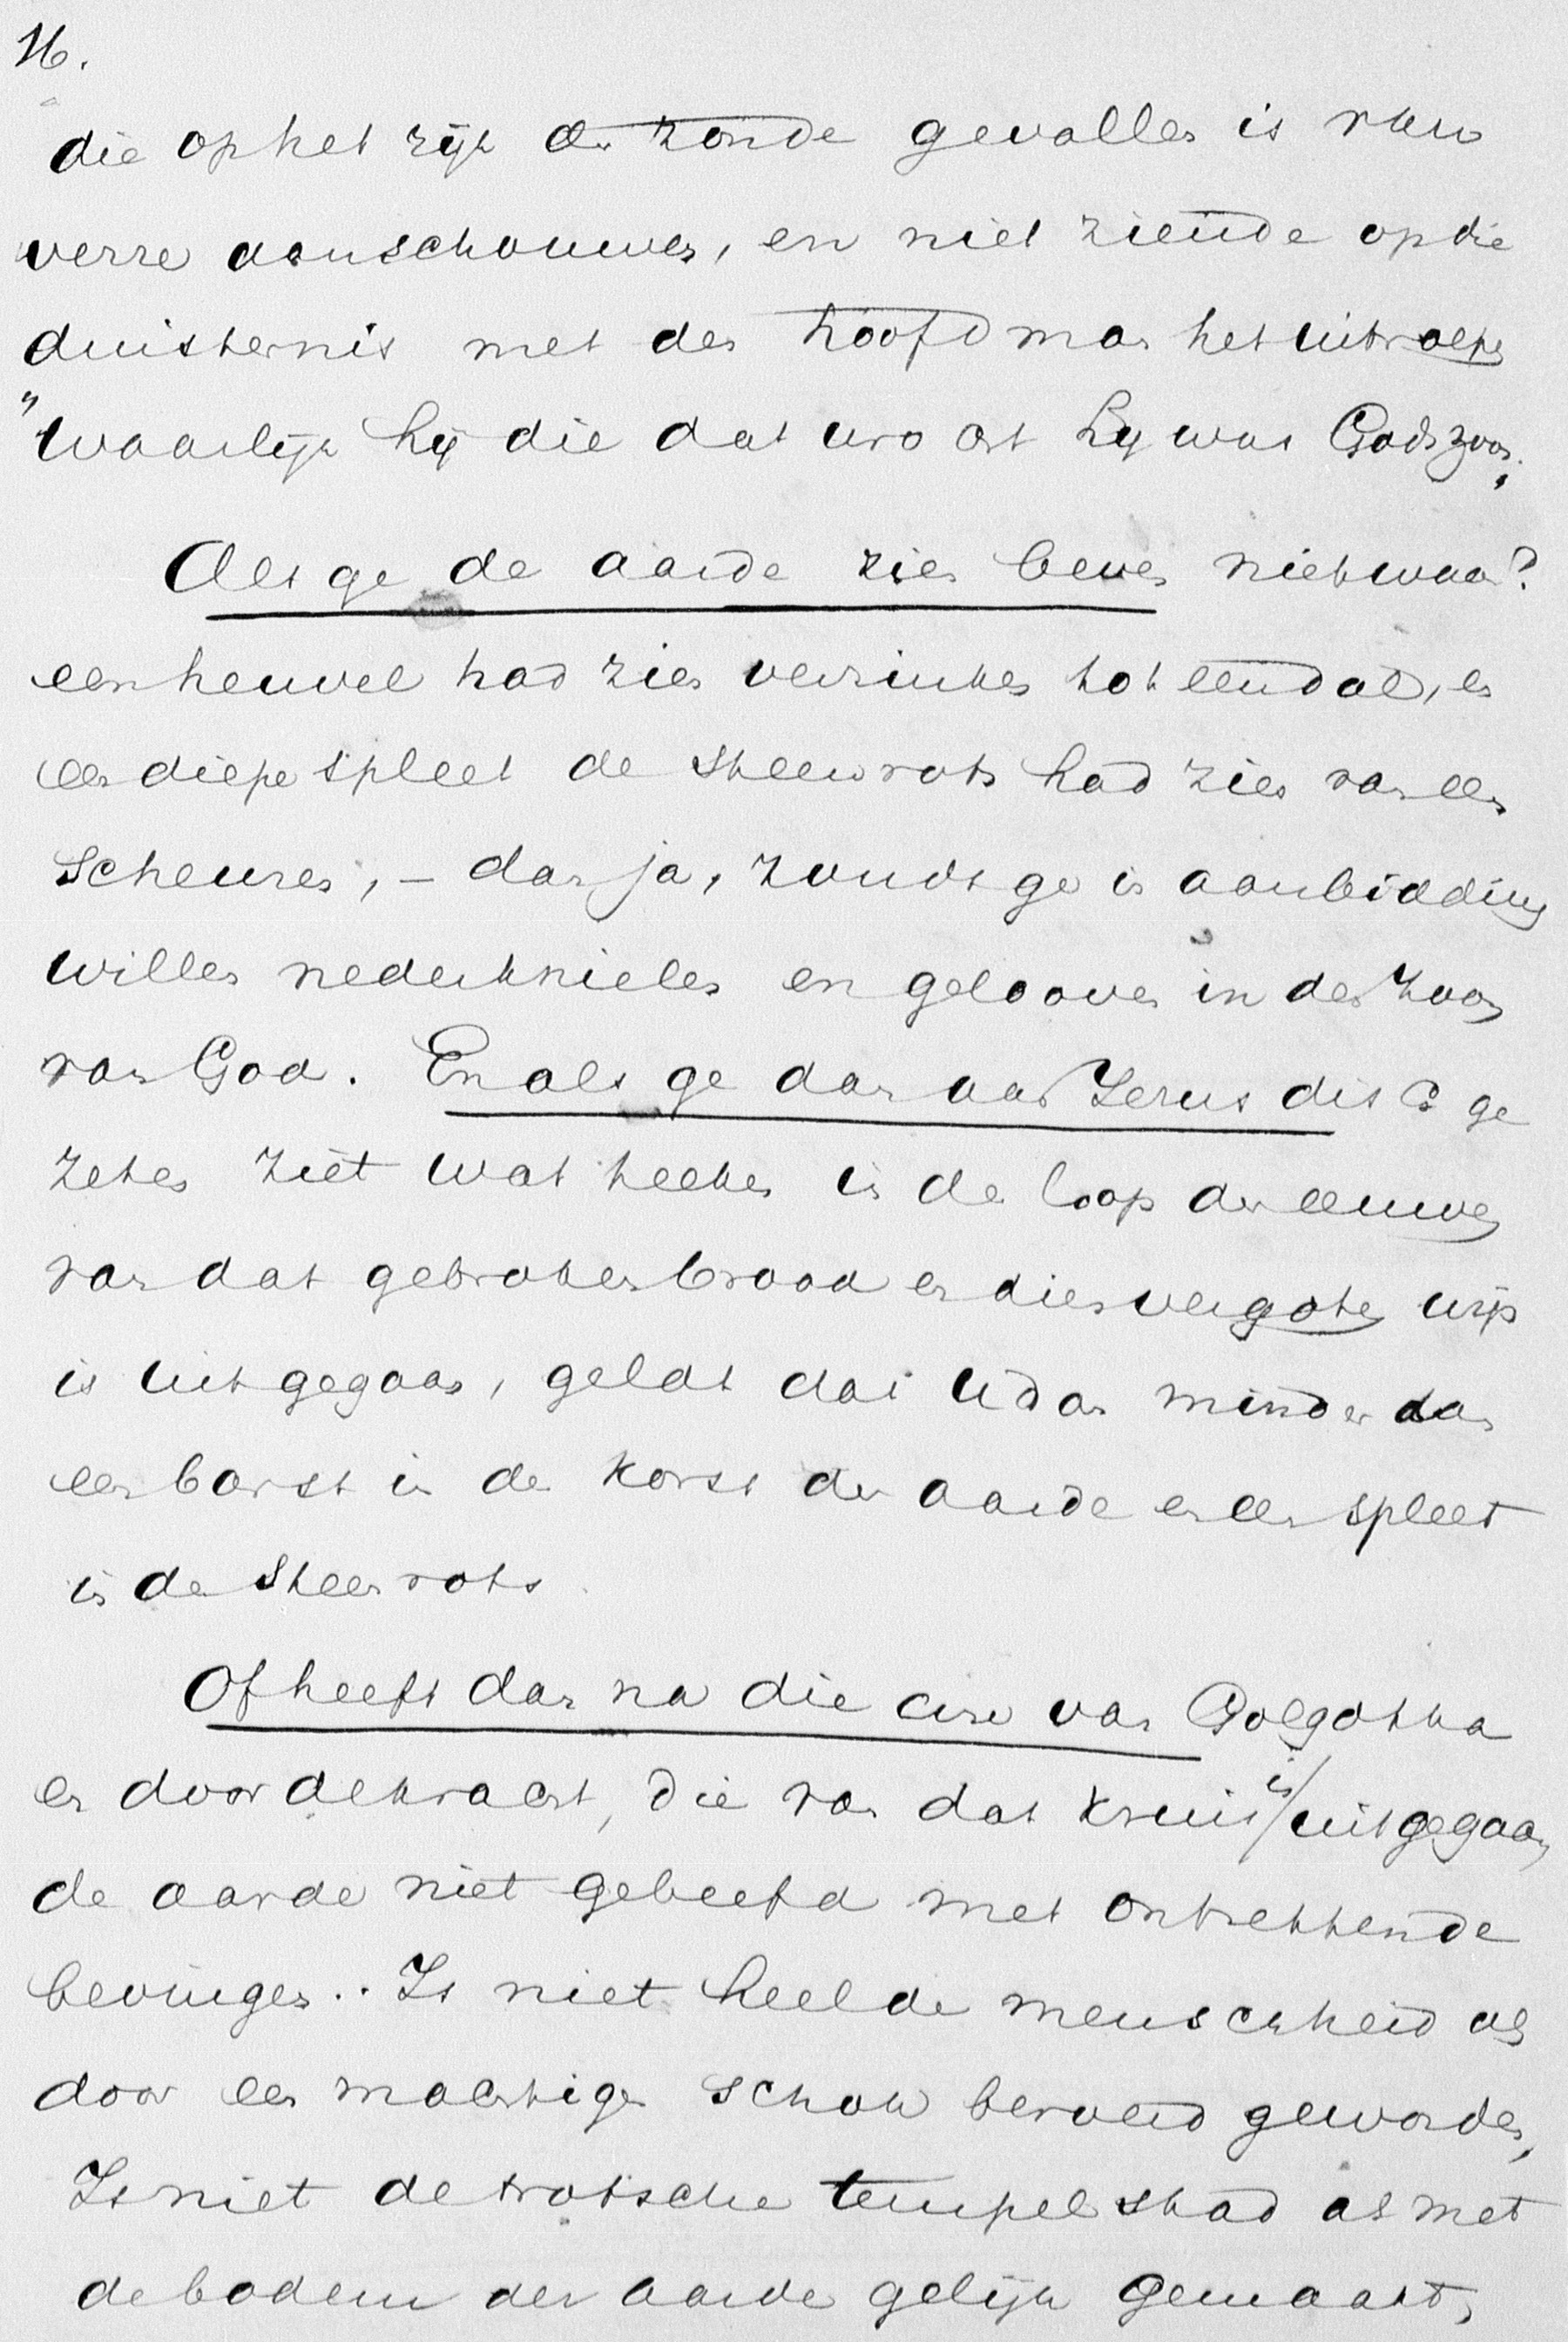 16.
die op het rijk der zonde gevallen is van
verre aanschouwen, en niet ziende op die
duisternis met den hoofdman het uitroepen
"Waarlijk hij die dat wrocht hij was Gods zoon."
Als ge de aarde zien beven nietwaar?
een heuvel had zien verzinken tot een dal, en
een diepe spleet de steenrots had zien van een
scheuren, – dan ja, zoudt ge in aanbidding
willen nederknielen en gelooven in den Zoon
van God. En als ge dan aan Jezus disch ge
zeten ziet wat teeken in de loop der eeuwen
van dat gebroken brood en dien vergoten wijn
is uitgegaan, geldt dat u dan minder dan
een barst in de korst der aarde en een spleet
in de steenrots
Of heeft dan na die ure van Golgotha
en door de kracht, die van dat kruis is uitgegaan,
de aarde niet gebeefd met ontzettende
bevingen.. Is niet heel de menschheid als
door een machtigen schok beroerd geworden,
Is niet de trotsche tempelstad als met
de bodem der aarde gelijk gemaakt,